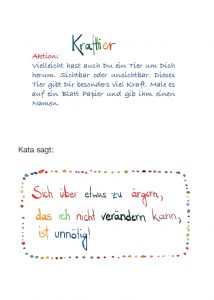 Krafttier
Aktion:
Vielleicht hast auch Du ein Tier um Dich
herum. Sichtbar oder unsichtbar. Dieses
Tier gibt Dir besonders viel Kraft. Male es
auf ein Blatt Papier und gib ihm einen
Namen.
Kata sagt:
Sich über etwas zu ärgern,
das ich nicht verändern kann,
ist unnötig!